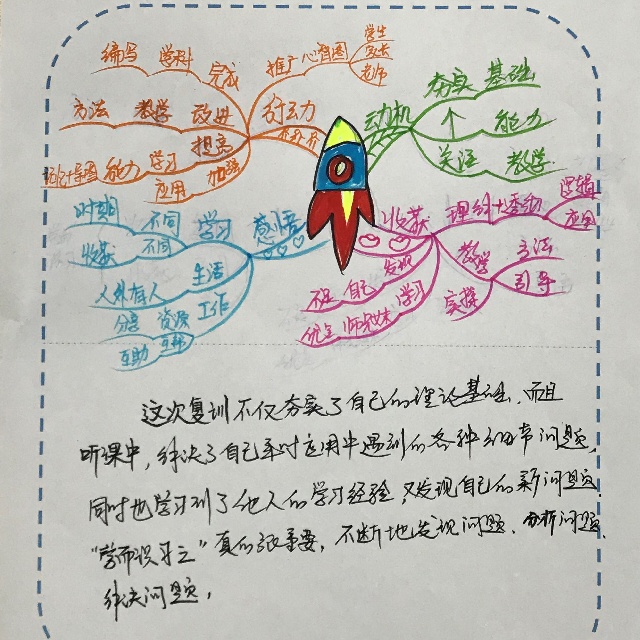 编写 学科 完成
推广 心智图
学生
家长
老师
方法 教学 改进
行动
能力 学习 提高
应用 加强
动机
夯实 基础
↑ 能力
关注 教学
时期 不同 学习
收获 不同
感悟
生活
人外有人
分享 资源 工作
互助
收获
理解
逻辑
应用
教学 方法
引导
实操
发现
不足 自己
优点 师兄妹 学习
这次复训不仅夯实了自己的理论基础,而且
听课中,解决了自己平时应用中遇到的各种细节问题,
同时也学习到了他人的学习经验,又发现自己的新问题.
“学而时习之”真的很重要,不断地发现问题、分析问题、
解决问题,